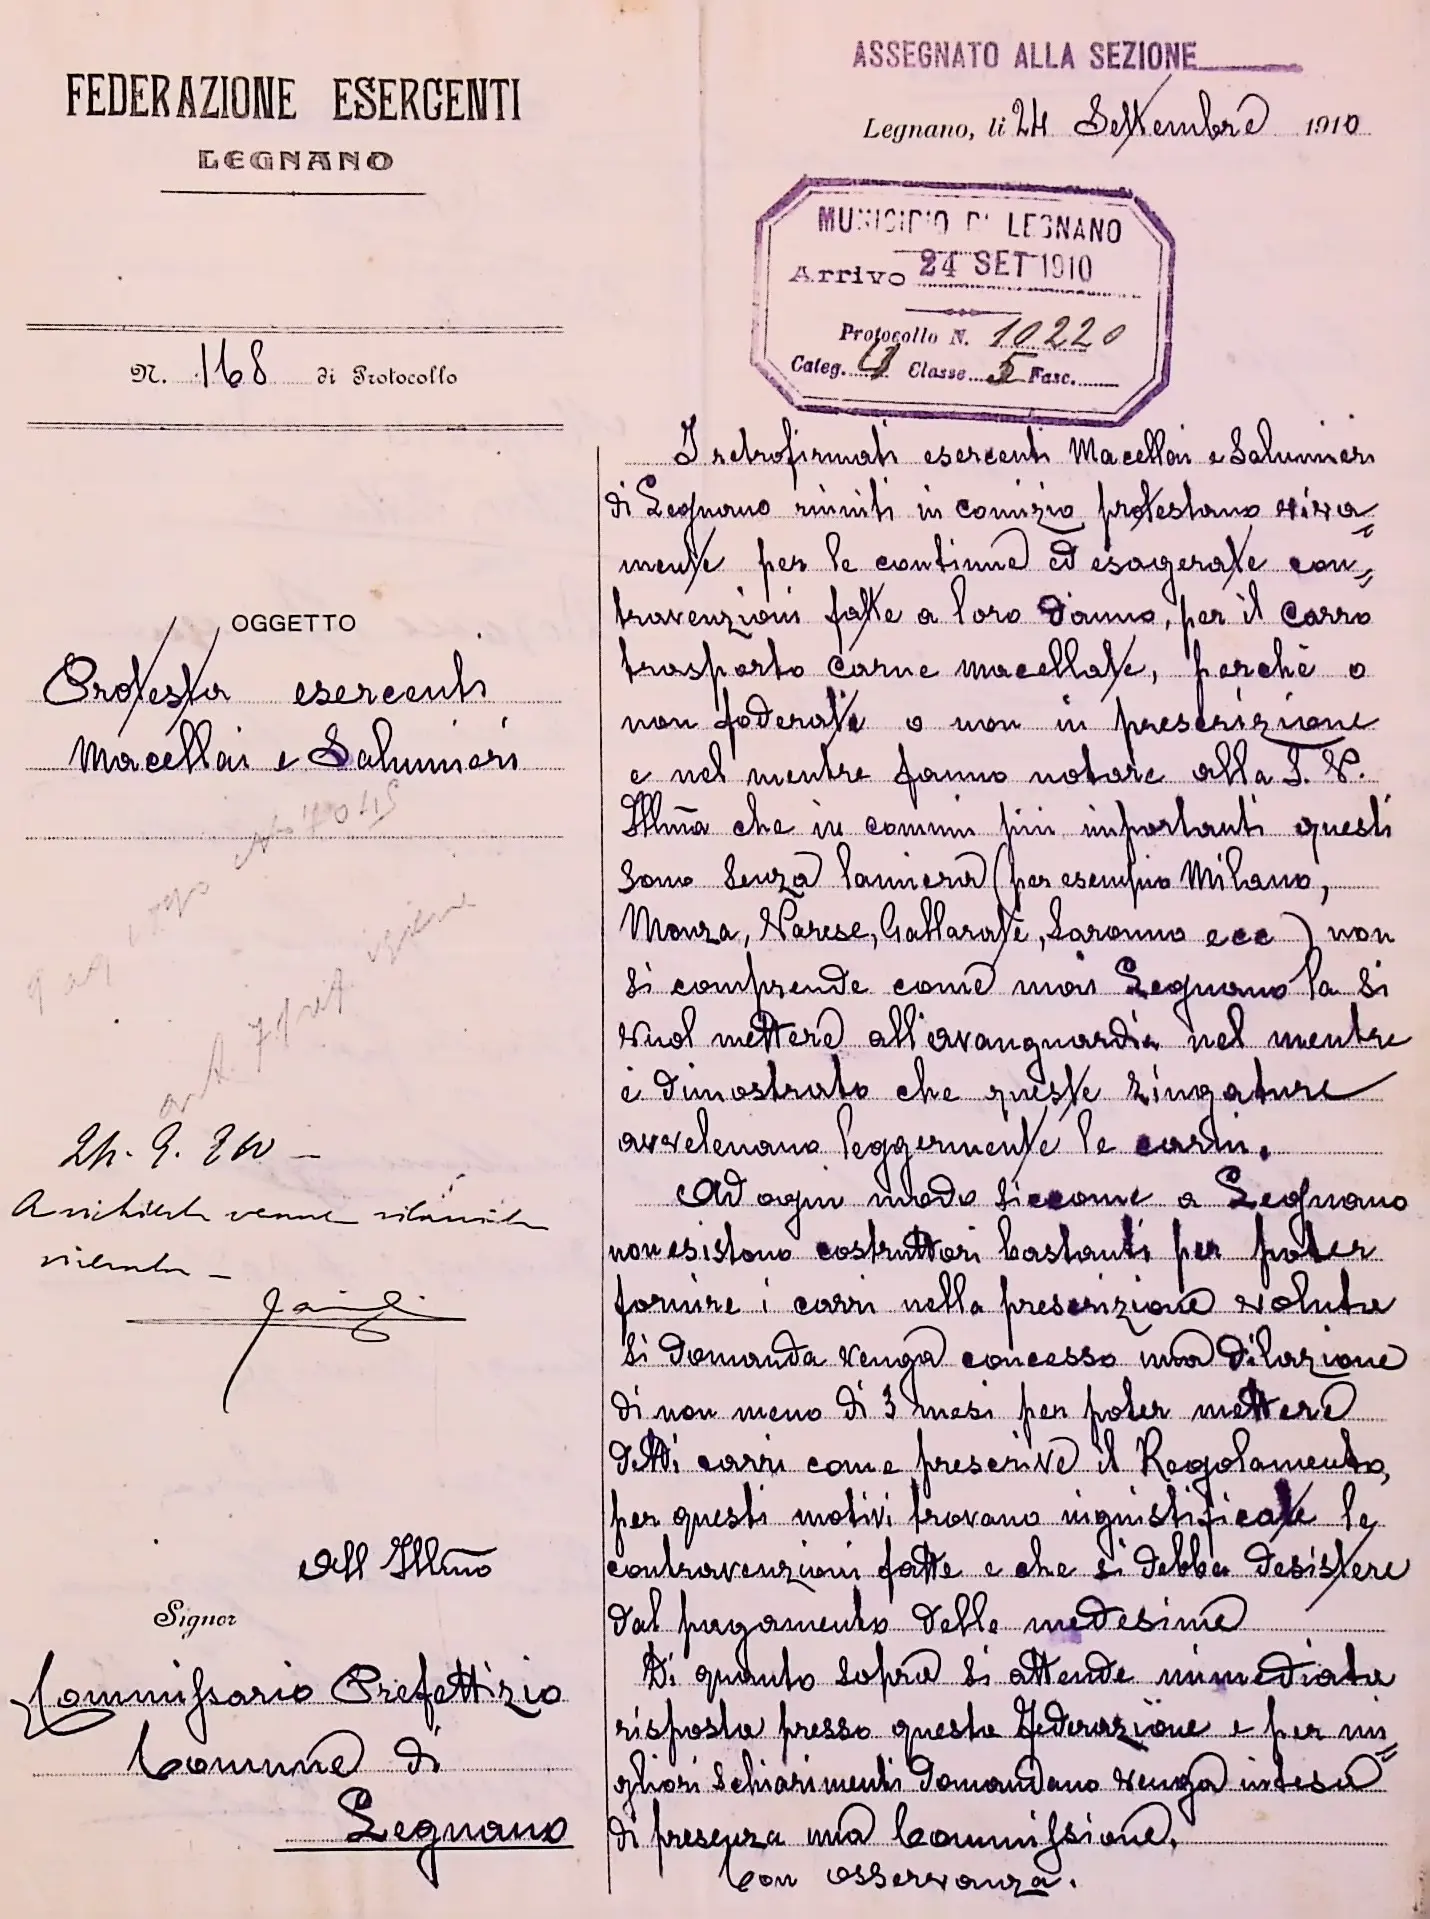 FEDERAZIONE ESERCENTI
LEGNANO
ASSEGNATO ALLA SEZIONE
Legnano, li 24 Settembre 1910
MUNICIPIO DI LEGNANO
Arrivo 24 SET 1910
Protocollo N. 10220
Categ. 4 Classe 5 Fasc.
N. 168 di Protocollo
OGGETTO
Protesta esercenti
Macellai e Salumieri
art. igiene
24. 9. 910 –
A richiesta venne
–
All Illmo
Signor
Commissario Prefettizio
Comune di
Legnano
I retrofirmati esercenti Macellai e Salumieri
di Legnano riuniti in comizio protestano viva=
mente per le continue ed esagerate con=
travenzioni fatte a loro danno, per il carro
trasporto carne macellate, perchè o
non foderati o non in prescrizione
e nel mentre fanno notare alla S. V.
Illma che in comuni più importanti questi
sono senza lamiera (per esempio Milano,
Monza, Varese, Gallarate, Saronno ecc) non
si comprende come mai Legnano la si
vuol mettere all'avanguardia nel mentre
è dimostrato che queste zingature
avvelenano leggermente le carni.
Ad ogni modo siccome a Legnano
non esistono costruttori bastanti per poter
fornire i carri nella prescrizione voluta
si domanda venga concesso una dilazione
di non meno di 3 mesi per poter mettere
detti carri come prescrive il Regolamento,
per questi motivi trovano ingiustificate le
contravenzioni fatte e che si debba desistere
dal pagamento delle medesime
Di quanto sopra si attende immediata
risposta presso questa Federazione e per mi=
gliori schiarimenti domandano venga intesa
di presenza una Commissione.
Con osservanza.